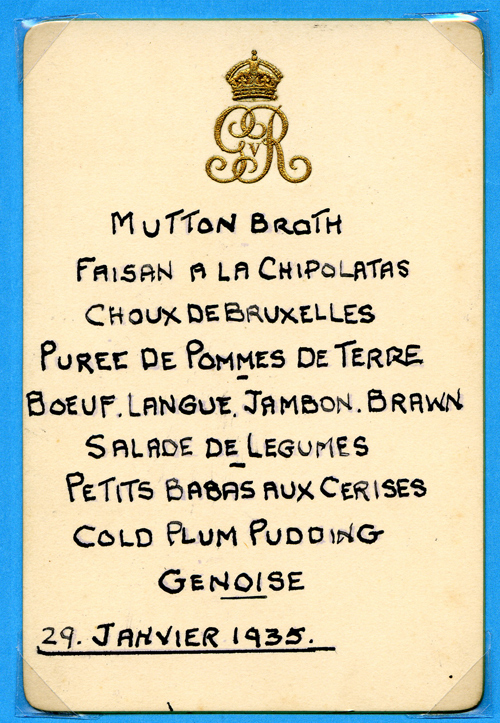 GRV
MUTTON BROTH
FAISAN A LA CHIPOLATAS
CHOUX DE BRUXELLES
PUREE DE POMMES DE TERRE
BOEUF. LANGUE. JAMBON. BRAWN
SALADE DE LEGUMES
PETITS BABAS AUX CERISES
COLD PLUM PUDDING
GENOISE
29. JANVIER 1935.